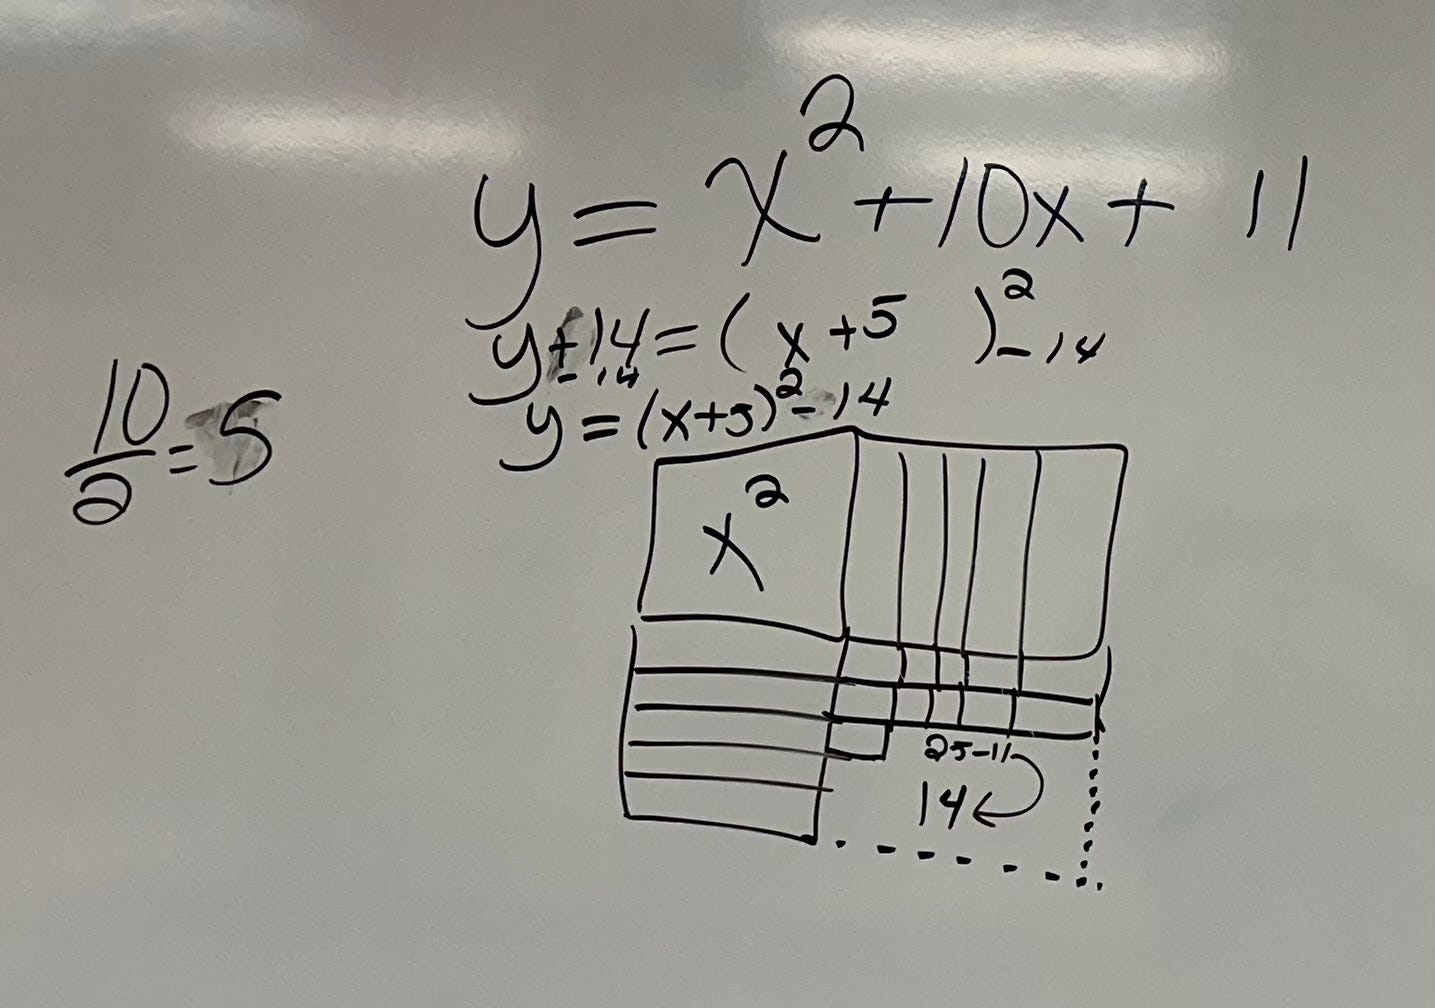 y = x² + 10x + 11
y + 14 = (x + 5)² - 14
- 14
y = (x+5)² - 14
10/2 = 5
x²
25-11
14